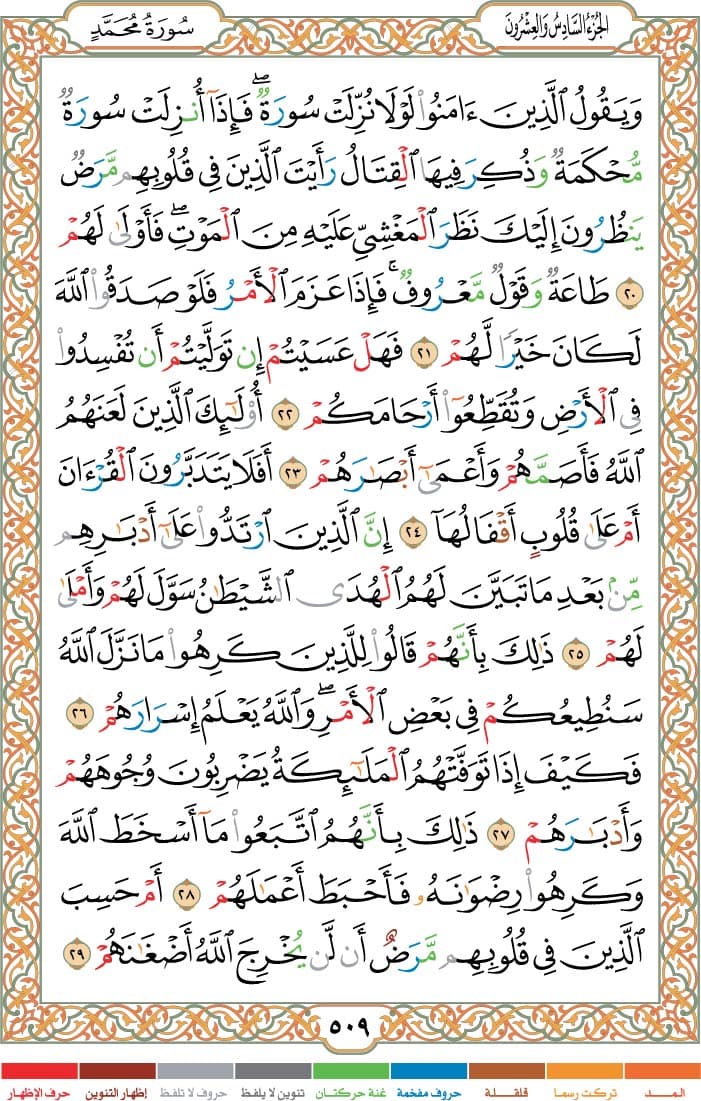 الجزء السادس والعشرون
سورة محمد
وَيَقُولُ ٱلَّذِينَ ءَامَنُوا۟ لَوْلَا نُزِّلَتْ سُورَةٌ ۖ فَإِذَآ أُنزِلَتْ سُورَةٌ
مُّحْكَمَةٌ وَذُكِرَ فِيهَا ٱلْقِتَالُ رَأَيْتَ ٱلَّذِينَ فِى قُلُوبِهِم مَّرَضٌ
يَنظُرُونَ إِلَيْكَ نَظَرَ ٱلْمَغْشِىِّ عَلَيْهِ مِنَ ٱلْمَوْتِ ۖ فَأَوْلَىٰ لَهُمْ
٢٠ طَاعَةٌ وَقَوْلٌ مَّعْرُوفٌ ۚ فَإِذَا عَزَمَ ٱلْأَمْرُ فَلَوْ صَدَقُوا۟ ٱللَّهَ
لَكَانَ خَيْرًا لَّهُمْ ٢١ فَهَلْ عَسَيْتُمْ إِن تَوَلَّيْتُمْ أَن تُفْسِدُوا۟
فِى ٱلْأَرْضِ وَتُقَطِّعُوٓا۟ أَرْحَامَكُمْ ٢٢ أُو۟لَٰٓئِكَ ٱلَّذِينَ لَعَنَهُمُ
ٱللَّهُ فَأَصَمَّهُمْ وَأَعْمَىٰٓ أَبْصَٰرَهُمْ ٢٣ أَفَلَا يَتَدَبَّرُونَ ٱلْقُرْءَانَ
أَمْ عَلَىٰ قُلُوبٍ أَقْفَالُهَآ ٢٤ إِنَّ ٱلَّذِينَ ٱرْتَدُّوا۟ عَلَىٰٓ أَدْبَٰرِهِم
مِّنۢ بَعْدِ مَا تَبَيَّنَ لَهُمُ ٱلْهُدَى ٱلشَّيْطَٰنُ سَوَّلَ لَهُمْ وَأَمْلَىٰ
لَهُمْ ٢٥ ذَٰلِكَ بِأَنَّهُمْ قَالُوا۟ لِلَّذِينَ كَرِهُوا۟ مَا نَزَّلَ ٱللَّهُ
سَنُطِيعُكُمْ فِى بَعْضِ ٱلْأَمْرِ ۖ وَٱللَّهُ يَعْلَمُ إِسْرَارَهُمْ ٢٦
فَكَيْفَ إِذَا تَوَفَّتْهُمُ ٱلْمَلَٰٓئِكَةُ يَضْرِبُونَ وُجُوهَهُمْ
وَأَدْبَٰرَهُمْ ٢٧ ذَٰلِكَ بِأَنَّهُمُ ٱتَّبَعُوا۟ مَآ أَسْخَطَ ٱللَّهَ
وَكَرِهُوا۟ رِضْوَٰنَهُۥ فَأَحْبَطَ أَعْمَٰلَهُمْ ٢٨ أَمْ حَسِبَ
ٱلَّذِينَ فِى قُلُوبِهِم مَّرَضٌ أَن لَّن يُخْرِجَ ٱللَّهُ أَضْغَٰنَهُمْ ٢٩
٥٠٩
المــد تركت رسما قلقلة حروف مفخمة غنة حركتان تنوين لا يلفظ حروف لا تلفظ إظهار التنوين حرف الإظهار